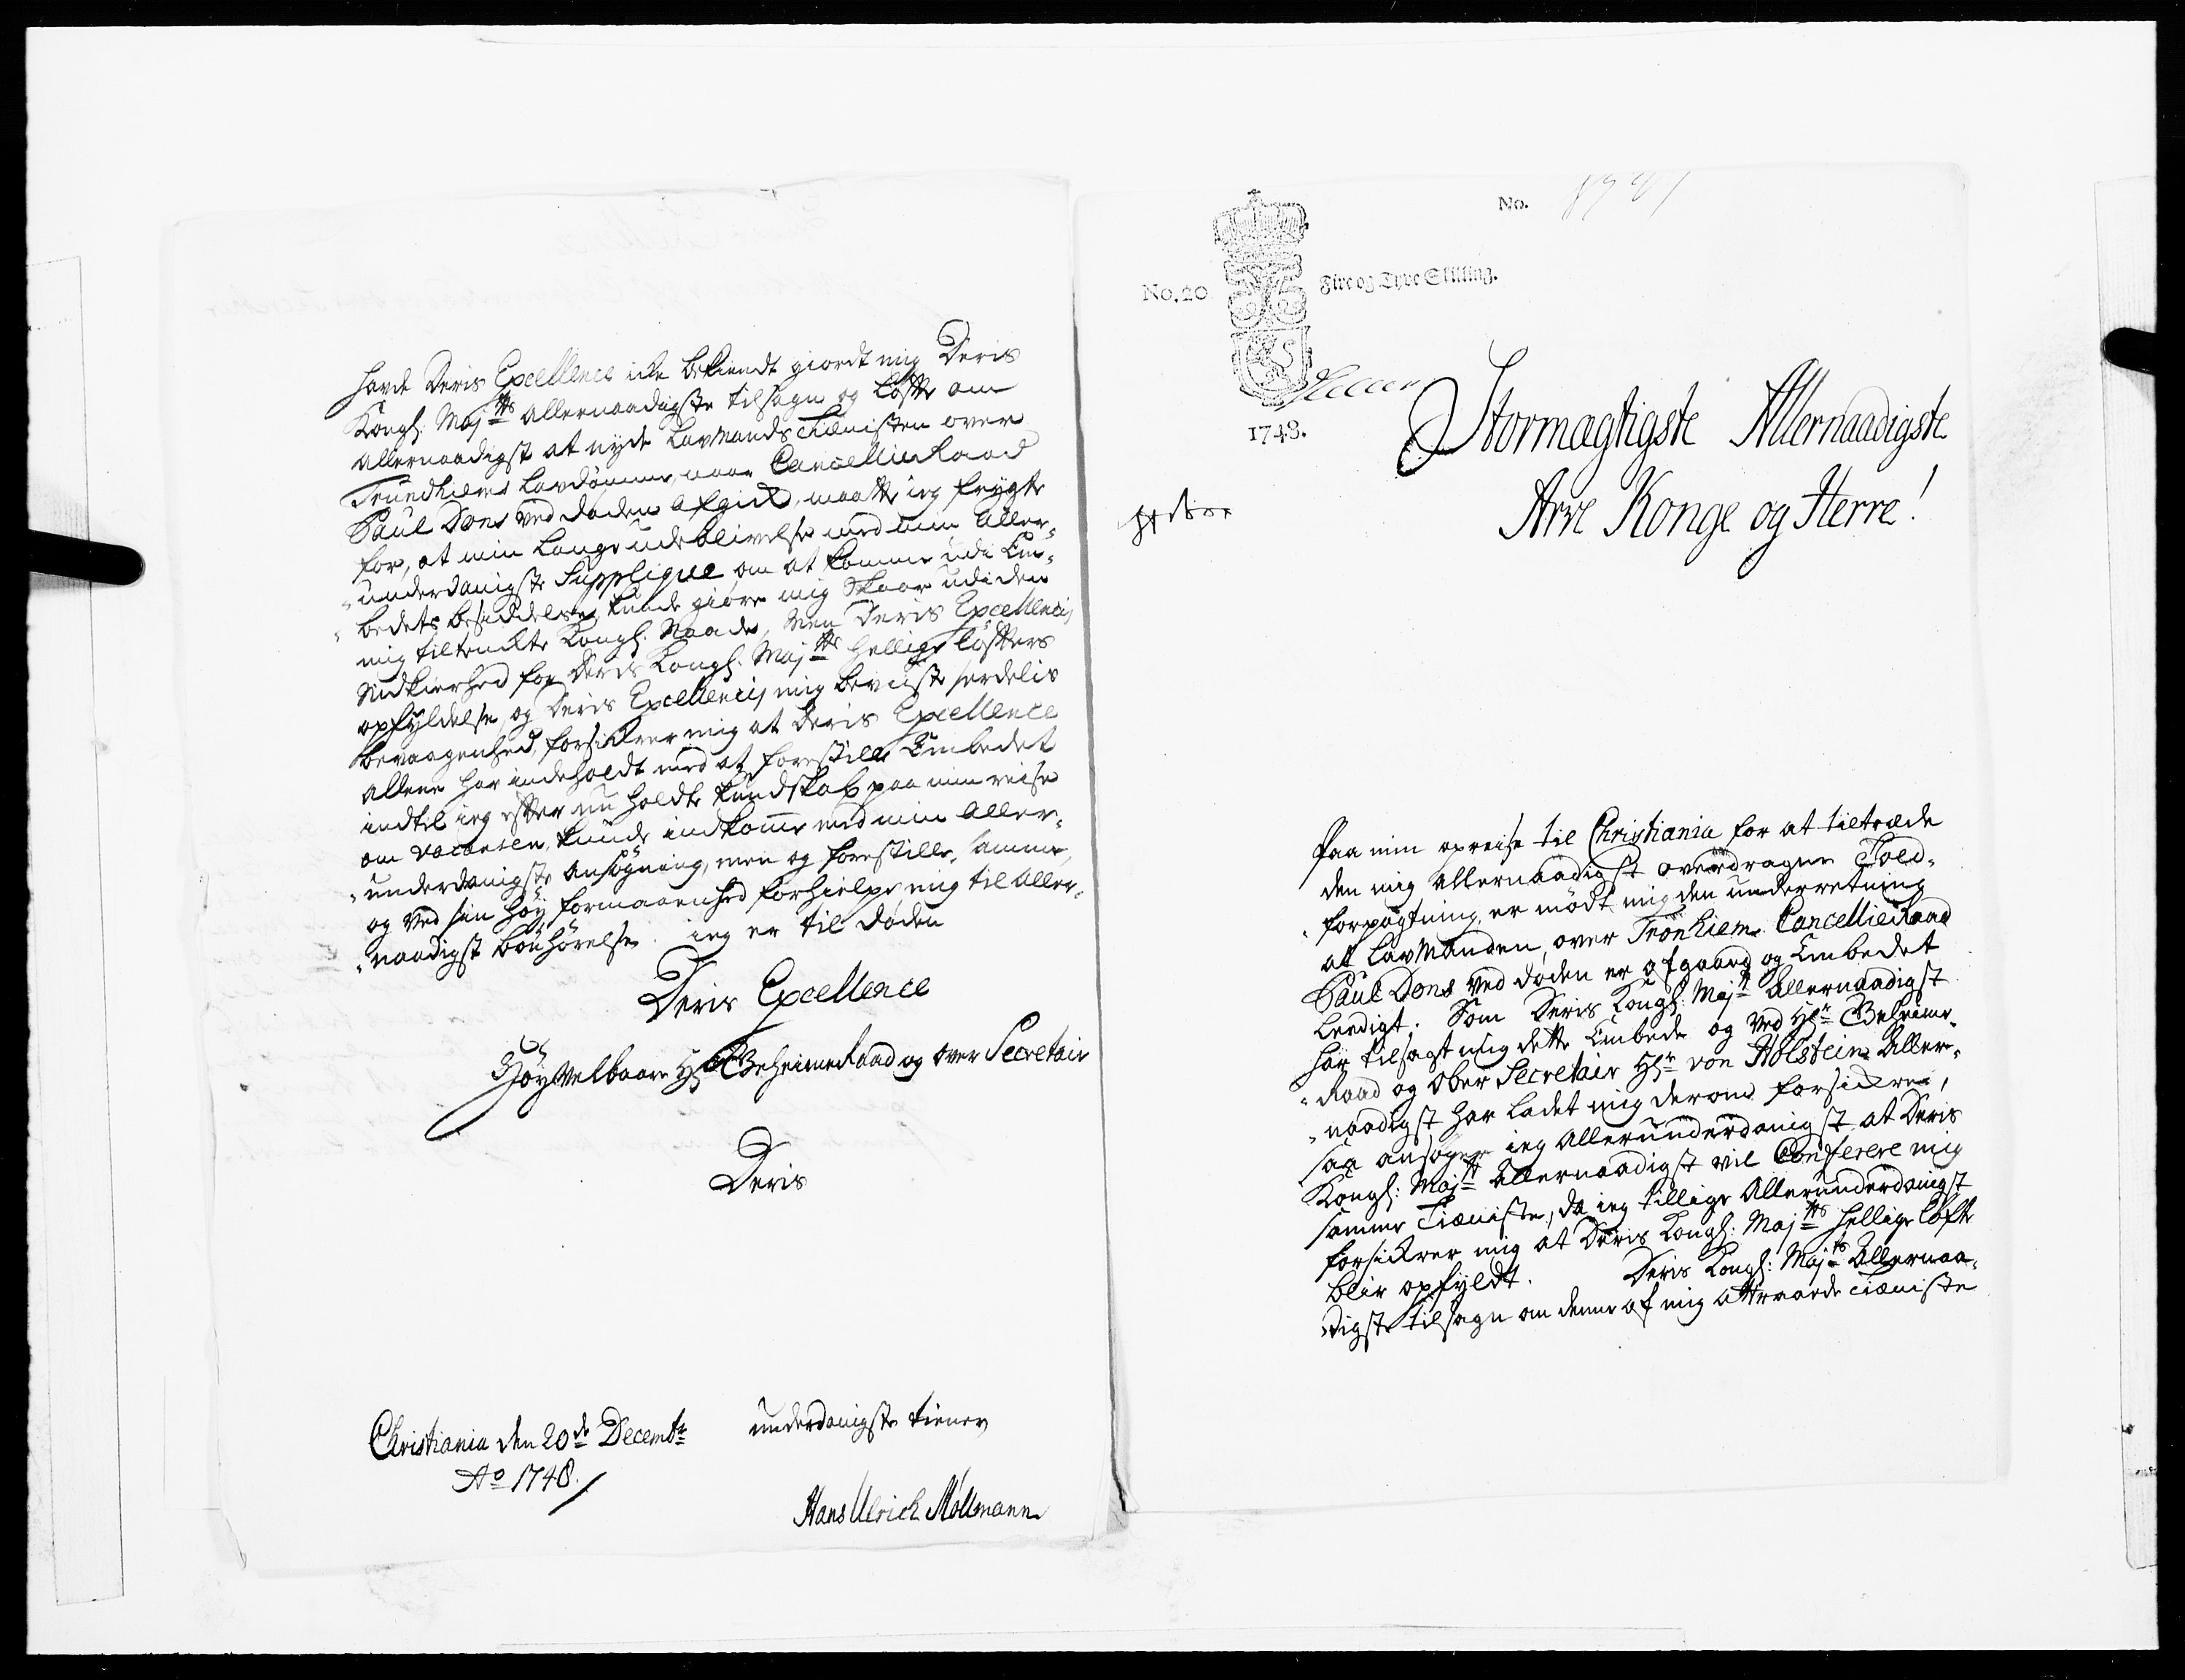 havde Deris Excellence ike bekiendt giordt mig Deris
Kongl: Majts allernaadigste tilsagn og Løfte om
allernaadigst at nyde LavMands Tiænisten over
Trundhiems Lavdømme, naar CancellieRaad
Paul Dons ved døden afgik, maatte ieg frygte
for, at min lange udeblivelse med min aller-
"underdanigste Supplique om at komme udi Em-
"bedets besiddelse, kunde giøre mig Skaar udi den
mig tiltenkte Kongl: Naade, Men Deris Excellencis
Nidkierhed for Deris Kongl: Majts hellige løfters
opfyldelse, og Deris Excellencis mig beviiste serdelis
bevaagenhed, forsikrer mig at Deris Excellence
allene har indeholdt med at forestille Embedet
indtil ieg efter nu holdte kundskab paa min reise
om Vacancen kunde indkome med min aller-
"underdanigste ansøgning, men og forestille samme,
og ved sin høy formaaenhed forhielpe mig til aller-
"naadigst bønhørelse. ieg er til døden
Deris Excellence
HøyVelbaarne Hr GeheimeRaad og Over Secretair
Deris
underdanigste tiener
Christiania den 20de Decembr
Ao 1748./
Hans Ulrich Møllmann
No.
No. 20
Fire og Tyve Skilling.
1748.
Stormagtigste Allernaadigste
Arve Konge og Herre!
Paa min opreise til Christiania for at tiltræde
den mig allernaadigst overdragne Told-
"forpagtning, er mødt mig den underretning
at LavManden over Tronhiem CancellieRaad
Paul Dons ved døden er afgaaed og Embedet
leedigt. Som Deris Kongl: Majt allernaadigst
har tilsagt mig dette Embede og ved Hr Geheime-
"Raad og Ober Secretair Hr von Holstein aller-
"naadigst har ladet mig derom forsikre,
saa ansøger ieg allerunderdanigst at Deris
Kongl: Majt allernaadigst vil Conferere mig
samme Tiæniste, da ieg tillige allerunderdanigst
forsikrer mig at Deris Kongl: Majts hellige løfte
blir opfyldt. Deris Kongl: Majts Allernaa-
"digste tilsagn om denne af mig attraaede tiæniste